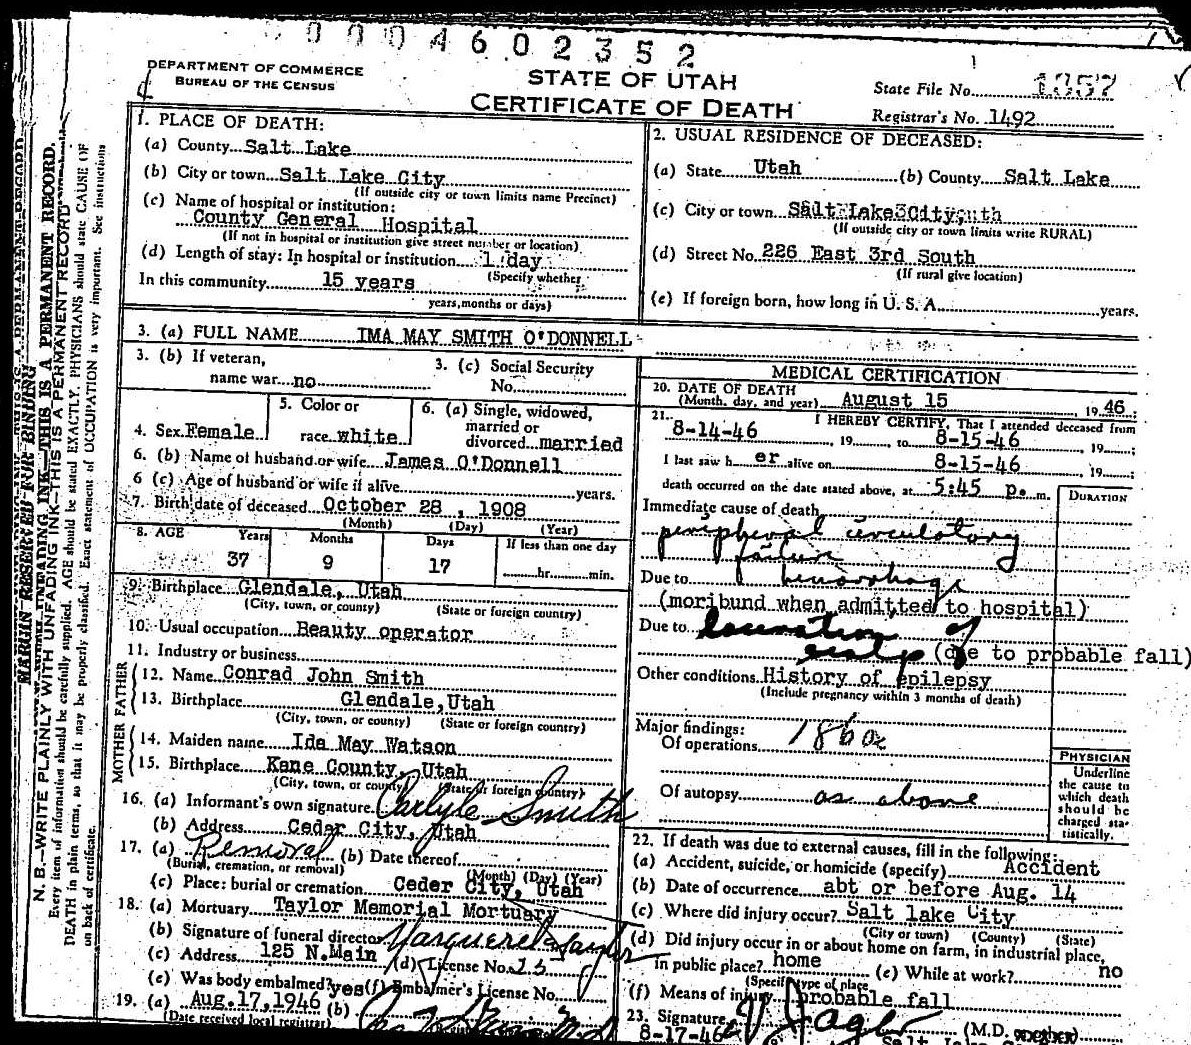 0004602352
DEPARTMENT OF COMMERCE
BUREAU OF THE CENSUS
STATE OF UTAH
CERTIFICATE OF DEATH
State File No. 1357
Registrar's No. 1492
1. PLACE OF DEATH:
(a) County Salt Lake
(b) City or town Salt Lake City
(If outside city or town limits name Precinct)
(c) Name of hospital or institution:
County General Hospital
(If not in hospital or institution give street number or location)
(d) Length of stay: In hospital or institution 1 day
(Specify whether
In this community 15 years
years, months or days)
2. USUAL RESIDENCE OF DECEASED:
(a) State Utah (b) County Salt Lake
(c) City or town Salt Lake City
(If outside city or town limits write RURAL)
(d) Street No. 226 East 3rd South
(If rural give location)
(e) If foreign born, how long in U. S. A. years.
3. (a) FULL NAME IMA MAY SMITH O'DONNELL
3. (b) If veteran,
name war no
3. (c) Social Security
No.
4. Sex Female
5. Color or
race white
6. (a) Single, widowed,
married or
divorced married
6. (b) Name of husband or wife James O'Donnell
6 (c) Age of husband or wife if alive years.
7. Birth date of deceased October 28, 1908
(Month) (Day) (Year)
8. AGE Years Months Days If less than one day
37 9 17 hr. min.
9. Birthplace Glendale, Utah
(City, town, or county) (State or foreign country)
10. Usual occupation Beauty operator
11. Industry or business
FATHER
12. Name Conrad John Smith
13. Birthplace Glendale, Utah
(City, town, or county) (State or foreign country)
MOTHER
14. Maiden name Ida May Watson
15. Birthplace Kane County, Utah
(City, town, or county) (State or foreign country)
16. (a) Informant's own signature Carlyle Smith
(b) Address Cedar City, Utah
17. (a) Removal (b) Date thereof
(Burial, cremation, or removal) (Month) (Day) (Year)
(c) Place: burial or cremation Ceder City, Utah
18. (a) Mortuary Taylor Memorial Mortuary
(b) Signature of funeral director
(c) Address 125 N.Main (d) License No. 25
(e) Was body embalmed? yes (f) Embalmer's License No.
19. (a) Aug.17,1946 (b)
(Date received local registrar)
MEDICAL CERTIFICATION
20. DATE OF DEATH
(Month, day, and year) August 15, 1946;
21. I HEREBY CERTIFY, That I attended deceased from
8-14-46, 19 , to 8-15-46, 19 ;
I last saw h er alive on 8-15-46, 19 ;
death occurred on the date stated above, at 5:45 p. m.
DURATION
Immediate cause of death
peripheral circulatory
failure
Due to hemorrhage
(moribund when admitted to hospital)
Due to laceration of
scalp (due to probable fall)
Other conditions History of epilepsy
(Include pregnancy within 3 months of death)
Major findings:
Of operations 186a
Of autopsy as above
PHYSICIAN
Underline
the cause to
which death
should be
charged sta-
tistically.
22. If death was due to external causes, fill in the following:
(a) Accident, suicide, or homicide (specify) Accident
(b) Date of occurrence abt or before Aug. 14
(c) Where did injury occur? Salt lake City
(City or town) (County) (State)
(d) Did injury occur in or about home on farm, in industrial place,
in public place? home (e) While at work? no
(Specify type of place
(f) Means of injury probable fall
23. Signature (M.D.
8-17-46
N. B.—WRITE PLAINLY WITH UNFADING INK—THIS IS A PERMANENT RECORD.
MARGIN RESERVED FOR BINDING
Every item of information should be carefully supplied. AGE should be stated EXACTLY. PHYSICIANS should state CAUSE OF
DEATH in plain terms, so that it may be properly classified. Exact statement of OCCUPATION is very important. See instructions
on back of certificate.